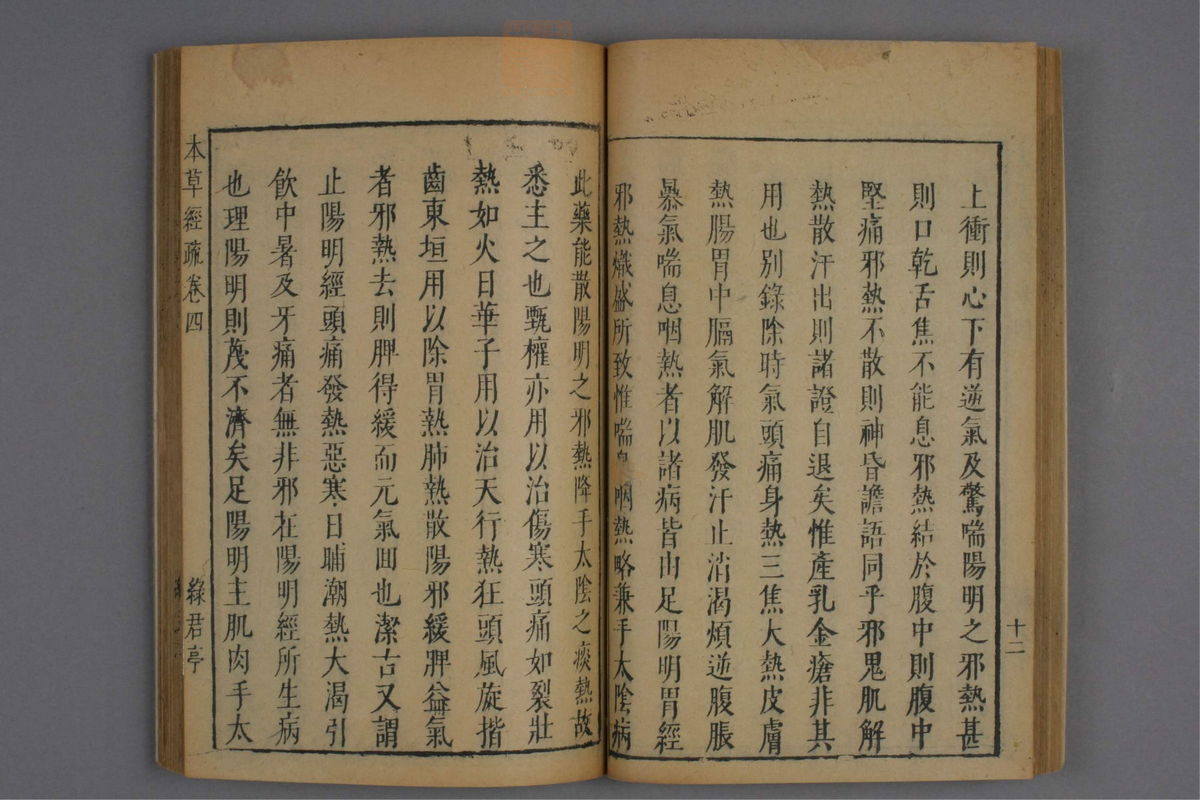 上衝則心下有逆氣及驚喘陽明之邪熱甚
則口乾舌焦不能息邪熱結於腹中則腹中
堅痛邪熱不散則神昏譫語同乎邪鬼肌解
熱散汗出則諸證自退矣惟產乳金瘡非其
用也别錄除時氣頭痛身熱三焦大熱皮膚
熱腸胃中膈氣解肌發汗止消渴煩逆腹脹
暴氣喘息咽熱者以諸病皆由足陽明胃經
邪熱熾盛所致惟喘息咽熱略兼手太陰病
十二
此藥能散陽明之邪熱降手太陰之痰熱故
悉主之也甄權亦用以治傷寒頭痛如裂壯
熱如火日華子用以治天行熱狂頭風旋揩
齒東垣用以除胃熱肺熱散陽邪緩脾益氣
者邪熱去則脾得緩而元氣回也潔古又謂
止陽明經頭痛發熱惡寒日晡潮熱大渴引
飲中暑及牙痛者無非邪在陽明經所生病
也理陽明則蔑不濟矣足陽明主肌肉手太
本草經疏卷四
綠君亭